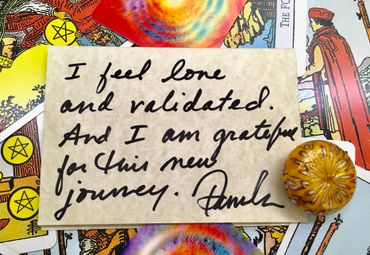 I feel love
and validated.
And I am grateful
for this new
journey. Pamela
THE FO